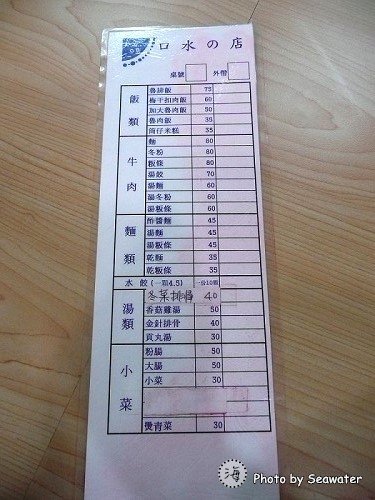 口水の店
桌號 外帶
飯類
魯排飯 75
梅干扣肉飯 60
加大魯肉飯 50
魯肉飯 35
筒仔米糕 35
牛肉
麵 80
冬粉 80
粄條 80
湯餃 70
湯麵 60
湯冬粉 60
湯粄條 60
麵類
酢醬麵 45
湯麵 45
湯粄條 45
乾麵 35
乾粄條 35
水餃(一顆4.5) 一份10顆
湯類
冬菜排骨 40
香菇雞湯 50
金針排骨 40
貢丸湯 30
小菜
粉腸 50
大腸 50
小菜 30
燙青菜 30
海 Photo by Seawater